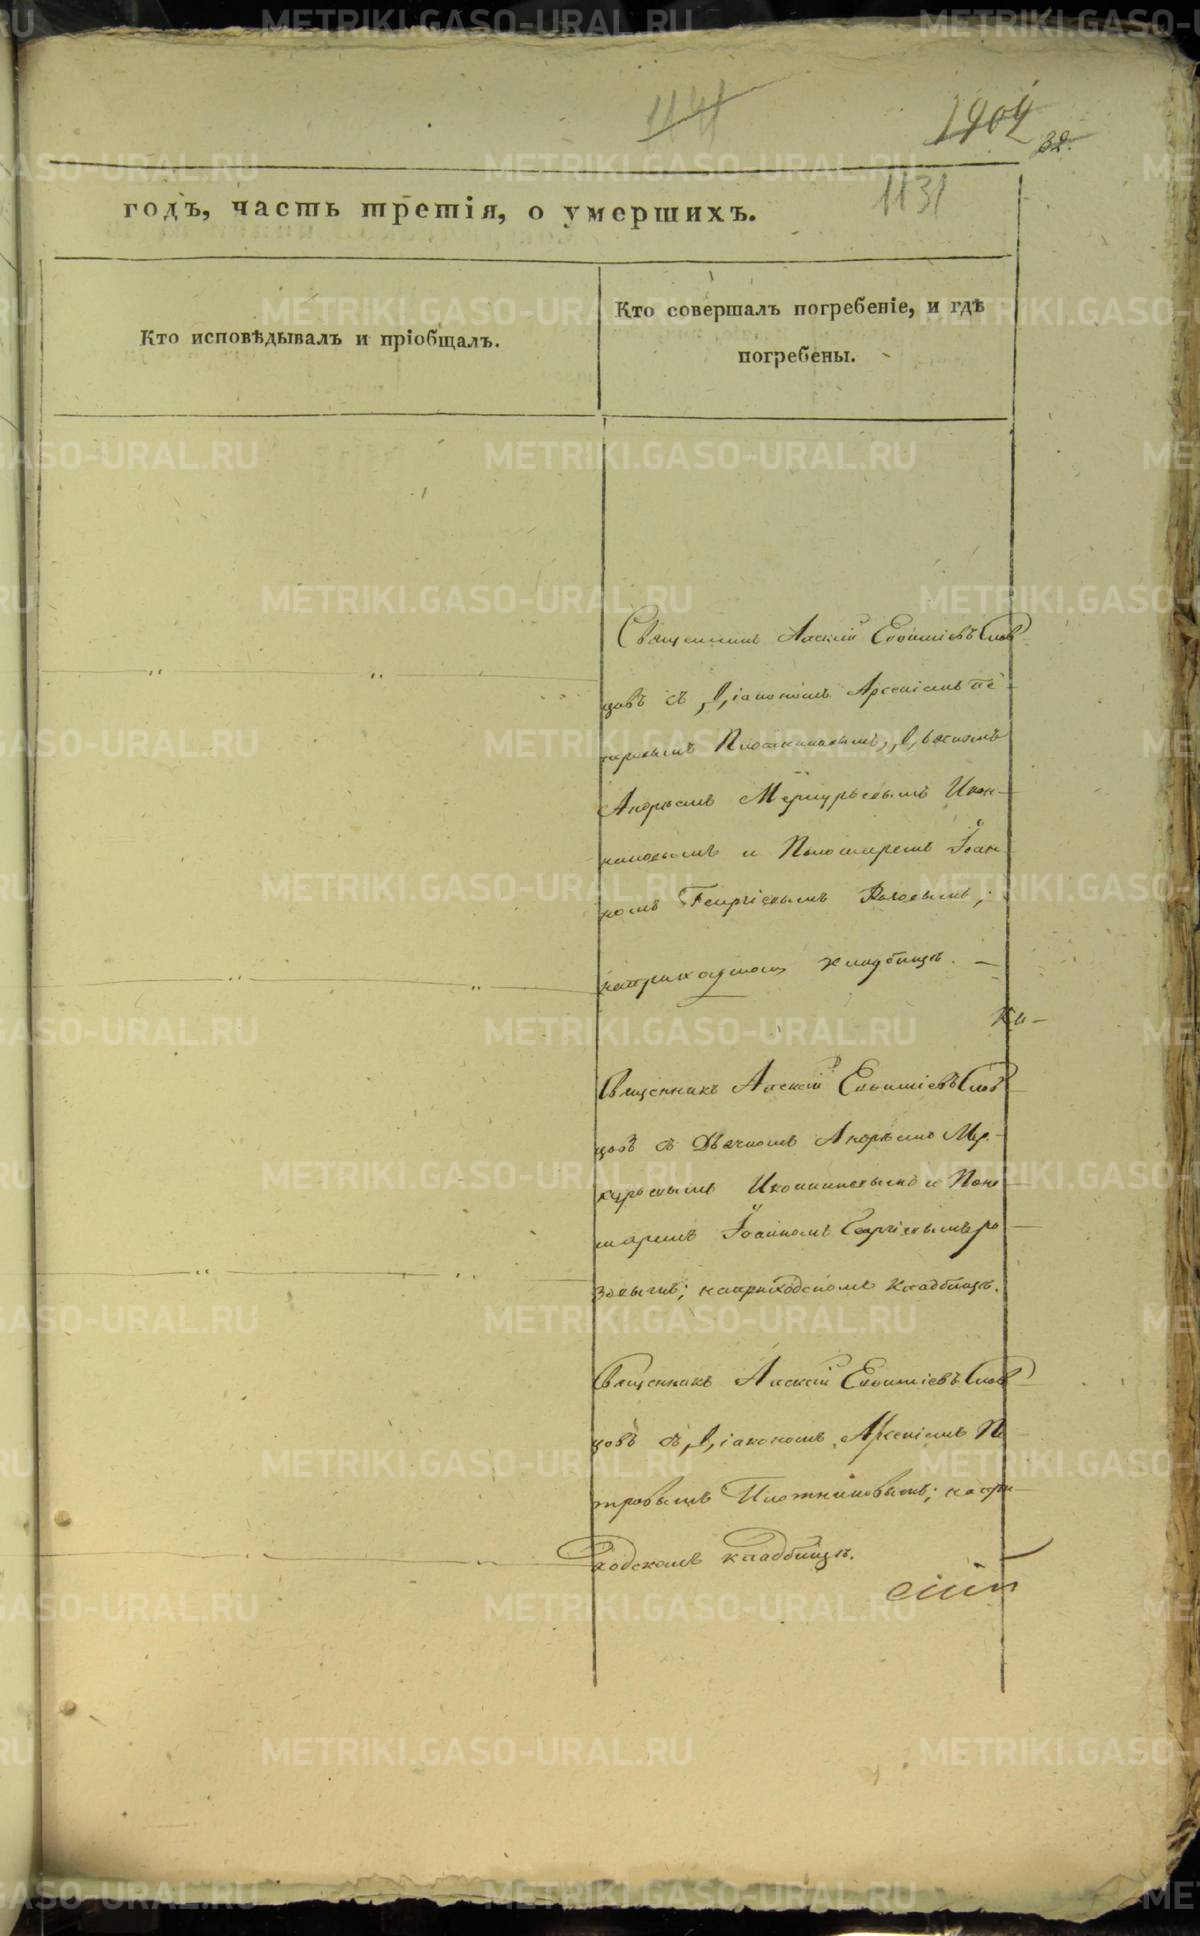 1904
32.
1131
годъ, часть третія, о умершихъ.
Кто исповѣдывалъ и пріобщалъ.
Кто совершалъ погребеніе, и гдѣ
погребены.
Священникъ Алексій Евѳиміевъ Слов-
цовъ съ Діакономъ Арсеніемъ Пе-
тровымъ Плотниковымъ, Дьячкомъ
Андреемъ Меркурьевымъ Икон-
никовымъ и Пономаремъ Іоан-
номъ Георгіевымъ
на приходскомъ кладбищѣ. —
Ка-
Священникъ Алексій Евѳиміевъ Слов-
цовъ съ Дьячкомъ Андреемъ Мер-
курьевымъ Иконниковымъ и Поно-
маремъ Іоанномъ Георгіевымъ Ро-
зовымъ; на приходскомъ кладбищѣ.
Священникъ Алексій Евѳиміевъ Слов-
цовъ съ Діакономъ Арсеніемъ Пе-
тровымъ Плотниковымъ; на при-
ходскомъ кладбищѣ.
METRIKI.GASO-URAL.RU